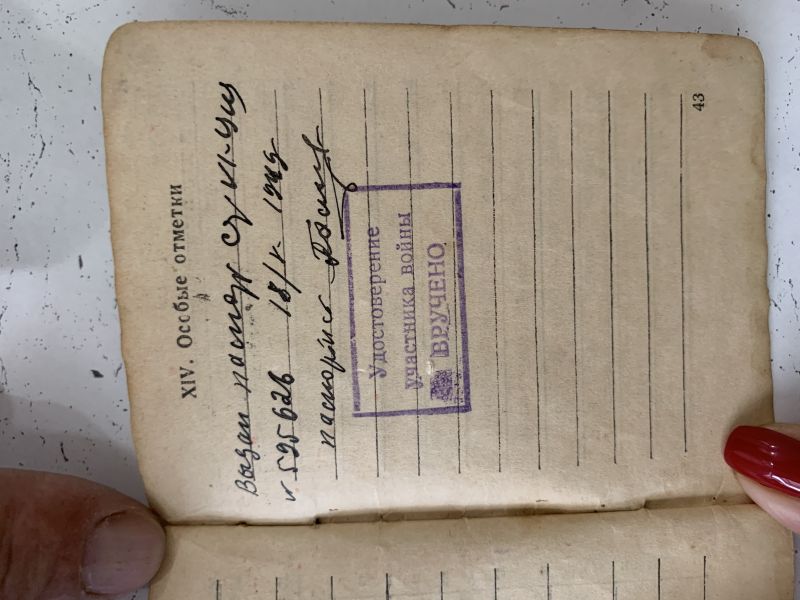 XIV. Особые отметки
Выдан паспорт
№ 595626 18/V. 1949
паспортист
Удостоверение
участника войны
ВРУЧЕНО
43